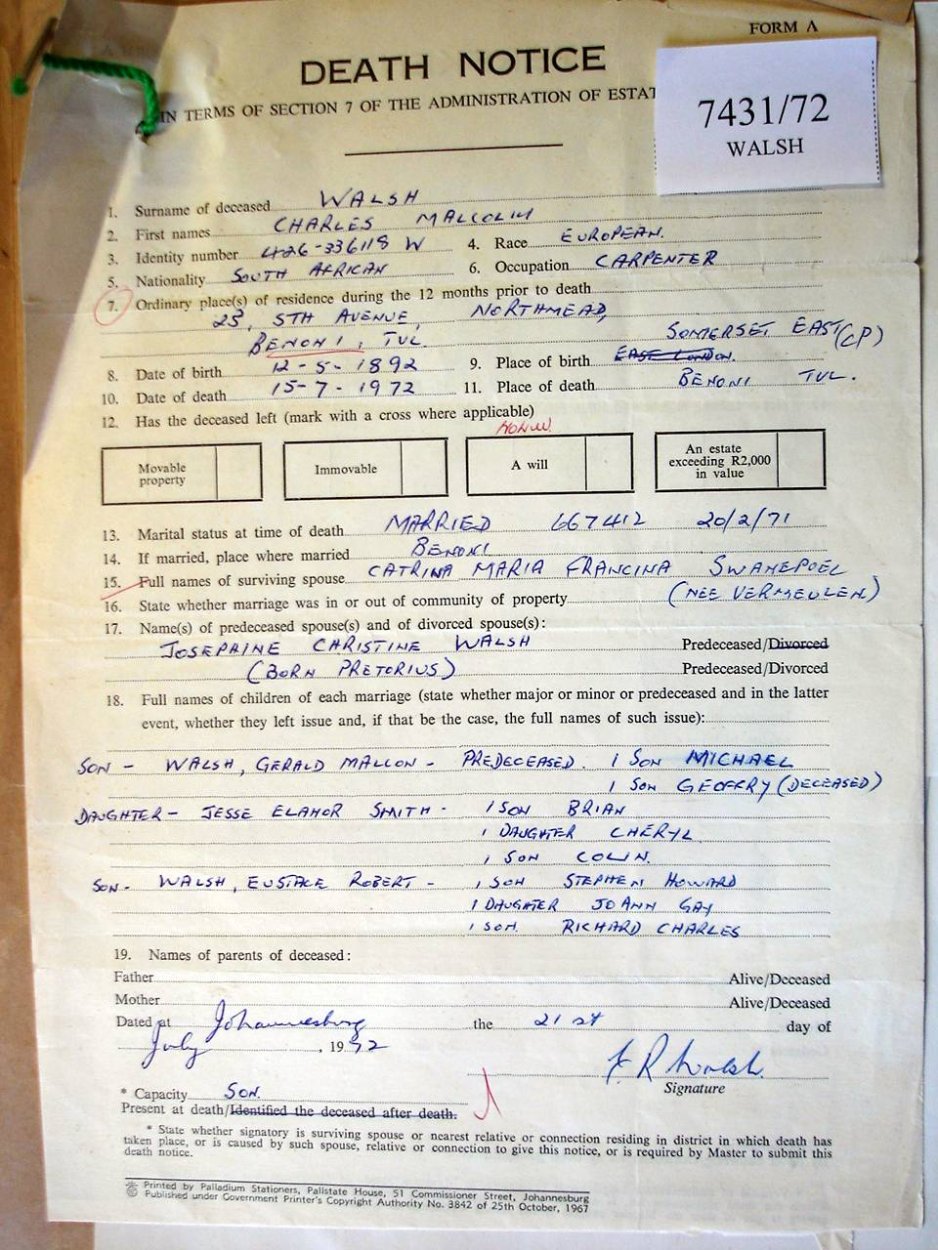 FORM A
DEATH NOTICE
IN TERMS OF SECTION 7 OF THE ADMINISTRATION OF ESTAT
7431/72
WALSH
1. Surname of deceased WALSH
2. First names CHARLES MALCOLM
3. Identity number 426-336118 W 4. Race EUROPEAN.
5. Nationality SOUTH AFRICAN 6. Occupation CARPENTER
7. Ordinary place(s) of residence during the 12 months prior to death
23, 5TH AVENUE, NORTHMEAD,
BENONI, TVL. SOMERSET EAST (CP)
8. Date of birth 12-5-1892 9. Place of birth EAST LONDON.
10. Date of death 15-7-1972 11. Place of death BENONI TVL.
12. Has the deceased left (mark with a cross where applicable)
Movable property
Immovable
A will
An estate exceeding R2,000 in value
13. Marital status at time of death MARRIED 667412 20/2/71
14. If married, place where married BENONI
15. Full names of surviving spouse CATRINA MARIA FRANCINA SWANEPOEL
16. State whether marriage was in or out of community of property (NEE VERMEULEN)
17. Name(s) of predeceased spouse(s) and of divorced spouse(s):
JOSEPHINE CHRISTINE WALSH Predeceased/Divorced
(BORN PRETORIUS) Predeceased/Divorced
18. Full names of children of each marriage (state whether major or minor or predeceased and in the latter
event, whether they left issue and, if that be the case, the full names of such issue):
SON - WALSH, GERALD MALLON - PREDECEASED. 1 SON MICHAEL
1 SON GEOFFRY (DECEASED)
DAUGHTER - JESSE ELANOR SMITH - 1 SON BRIAN
1 DAUGHTER CHERYL
1 SON COLIN.
SON - WALSH, EUSTACE ROBERT - 1 SON STEPHEN HOWARD
1 DAUGHTER JOANN GAY
1 SON. RICHARD CHARLES
19. Names of parents of deceased:
Father Alive/Deceased
Mother Alive/Deceased
Dated at Johannesburg the 21st day of
July, 1972
Walsh
Signature
* Capacity SON.
Present at death/Identified the deceased after death.
* State whether signatory is surviving spouse or nearest relative or connection residing in district in which death has
taken place, or is caused by such spouse, relative or connection to give this notice, or is required by Master to submit this
death notice.
Printed by Palladium Stationers, Pallstate House, 51 Commissioner Street, Johannesburg
© Published under Government Printer's Copyright Authority No. 3842 of 25th October, 1967